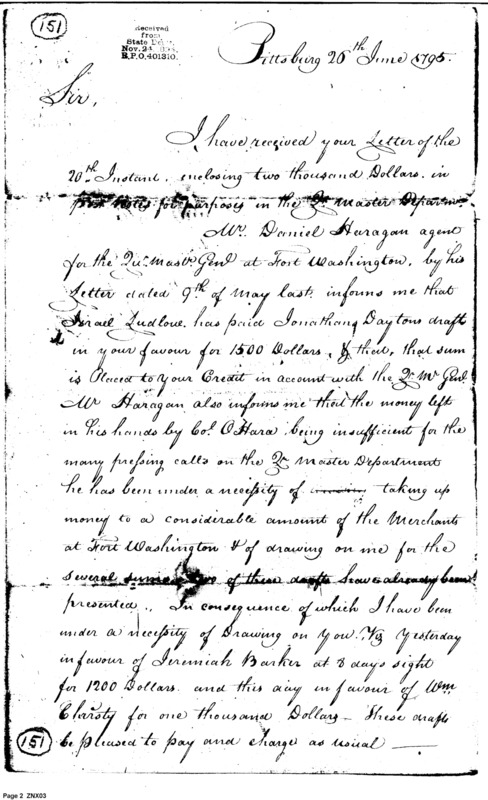 151
Received
from
State Dept.
Nov. 24
R.P.O. 401310.
Pittsburg 26th June 1795.
Sir,
I have received your Letter of the
20th Instant, enclosing two thousand Dollars, in
post notes for purposes in the Qr Master Departmt.
Mr. Daniel Haragan agent
for the Qur. Mastr. Genl. at Fort Washington, by his
Letter dated 9th of May last, informs me that
Israel Ludlow, has paid Jonathan Daytons draft
in your favour for 1500 Dollars, & that, that sum
is Placed to Your Credit in account with the Qr. Mr. Genl.
Mr Haragan also informs me that the money left
in his hands by Col. O'Hara being insufficient for the
many pressing calls on the Qr Master Department
he has been under a necessity of taking up
money to a considerable amount of the Merchants
at Fort Washington & of drawing on me for the
several sums two of these drafts have already been
presented., In consequence of which I have been
under a necessity of Drawing on You. Viz Yesterday
in favour of Jeremiah Barker at 8 days sight
for 1200 Dollars. and this day in favour of Wm
Christy for one thousand Dollars — These drafts
be pleased to pay and charge as usual —
151
Page 2 ZNX03